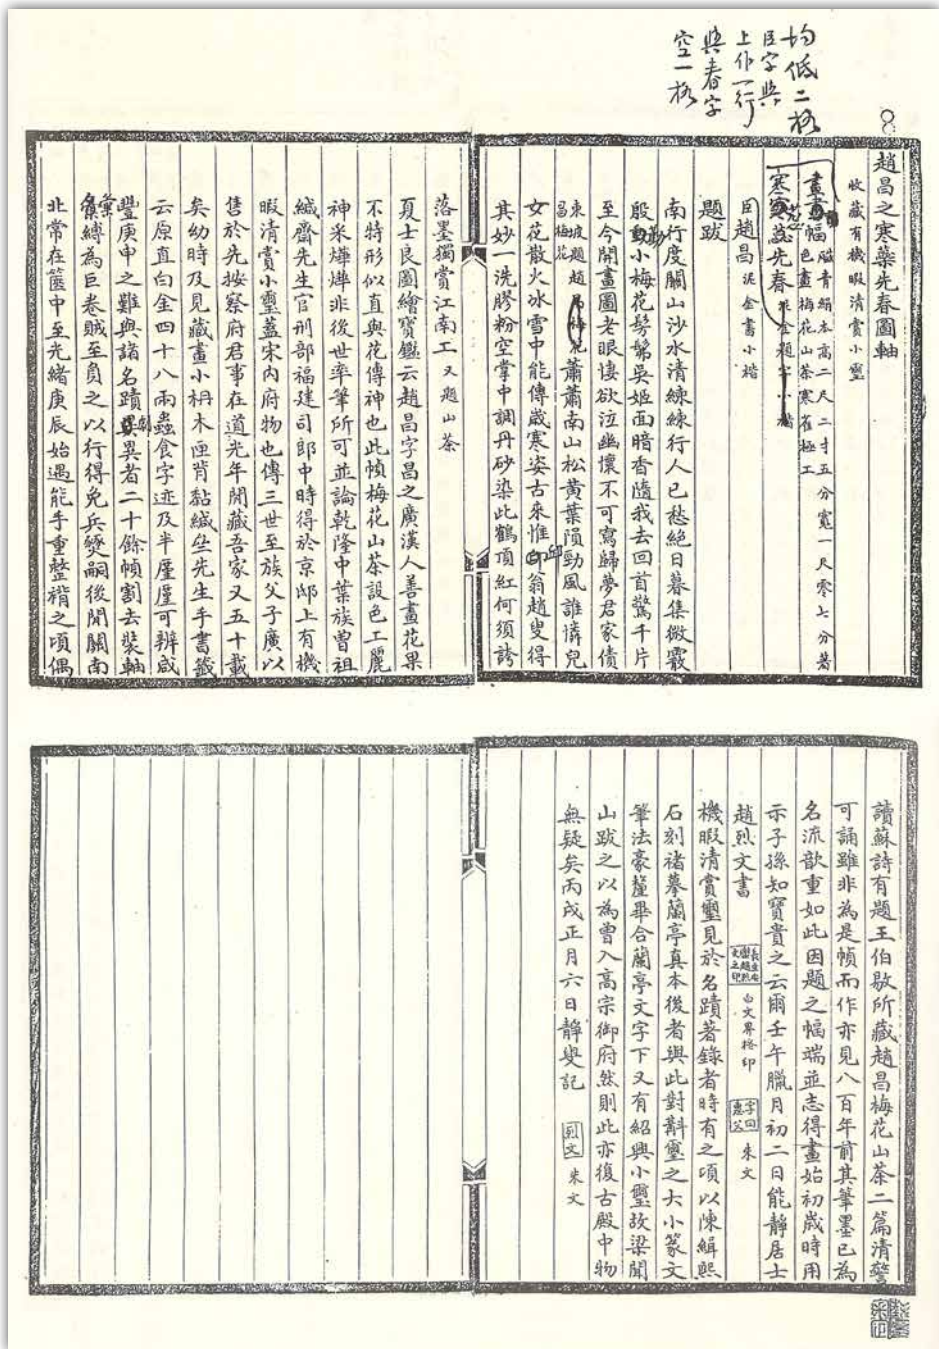 均低二格
臣字與
上作一行
與春字
空一格
趙昌之寒藥先春圖軸
收藏有機暇清賞小璽
畫幅 脇青絹本高二尺二寸五分寬一尺零七分著
色畫梅花山茶寒雀極工
寒花蕊先春 泥金題字小楷
臣趙昌 泥金書小楷
題跋
南行度關山沙水清練練行人已愁絕日暮集微霰
殷勤小梅花髣髴吳姬面暗香隨我去回首驚千片
至今開畫圖老眼悽欲泣幽懷不可寫歸夢君家倩
東坡題趙昌梅花 蕭蕭南山松黃葉隕勁風誰憐兒
女花散火冰雪中能傳歲寒姿古來惟邱翁趙叟得
其妙一洗膠粉空掌中調丹砂染此鶴頂紅何須誇
落墨獨賞江南工 又題山茶
夏士良圖繪寶鑑云趙昌字昌之廣漢人善畫花果
不特形似直與花傳神也此幀梅花山茶設色工麗
神采爗爗非後世率筆所可並論乾隆中葉族曾祖
緘齋先生官刑部福建司郎中時得於京邸上有機
暇清賞小璽蓋宋內府物也傳三世至族父子廣以
售於先按察府君事在道光年間藏吾家又五十載
矣幼時及見藏畫小枬木匣背黏緘坐先生手書籤
云原直白金四十八兩蟲食字迹及半廑廑可辨咸
豐庚申之難與諸名蹟劇異者二十餘幀割去裝軸
彙縛為巨卷賊至負之以行得免兵燹嗣後閒關南
北常在篋中至光緒庚辰始遇能手重整褙之頃偶
讀蘇詩有題王伯敭所藏趙昌梅花山茶二篇清警
可誦雖非為是幀而作亦見八百年前其筆墨已為
名流歆重如此因題之幅端並志得畫始初歲時用
示子孫知寶貴之云爾壬午臘月初二日能靜居士
趙烈文書 白文界格印 朱文
機暇清賞璽見於名蹟著錄者時有之頃以陳緝熙
石刻褚摹蘭亭真本後者與此對斠璽之大小篆文
筆法豪釐畢合蘭亭文字下又有紹興小璽故梁聞
山跋之以為曾入高宗御府然則此亦復古殿中物
無疑矣丙戌正月六日靜叟記 烈文 朱文